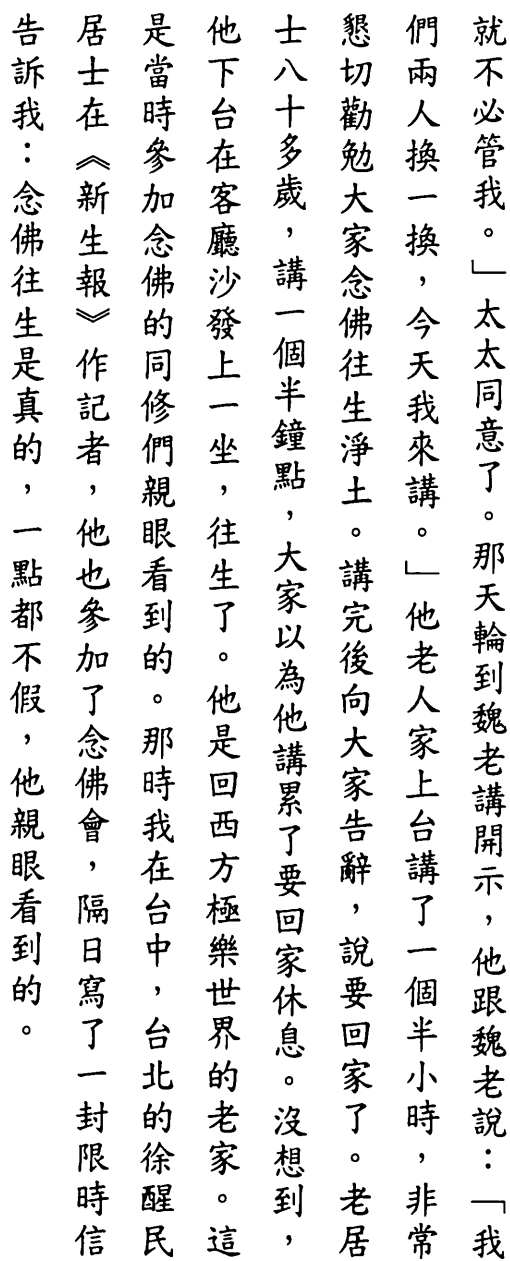 就不必管我。」太太同意了。那天輪到魏老講開示，他跟魏老說：「我
們兩人換一換，今天我來講。」他老人家上台講了一個半小時，非常
懇切勸勉大家念佛往生淨土。講完後向大家告辭，說要回家了。老居
士八十多歲，講一個半鐘點，大家以為他講累了要回家休息。沒想到，
他下台在客廳沙發上一坐，往生了。他是回西方極樂世界的老家。這
是當時參加念佛的同修們親眼看到的。那時我在台中，台北的徐醒民
居士在《新生報》作記者，他也參加了念佛會，隔日寫了一封限時信
告訴我：念佛往生是真的，一點都不假，他親眼看到的。